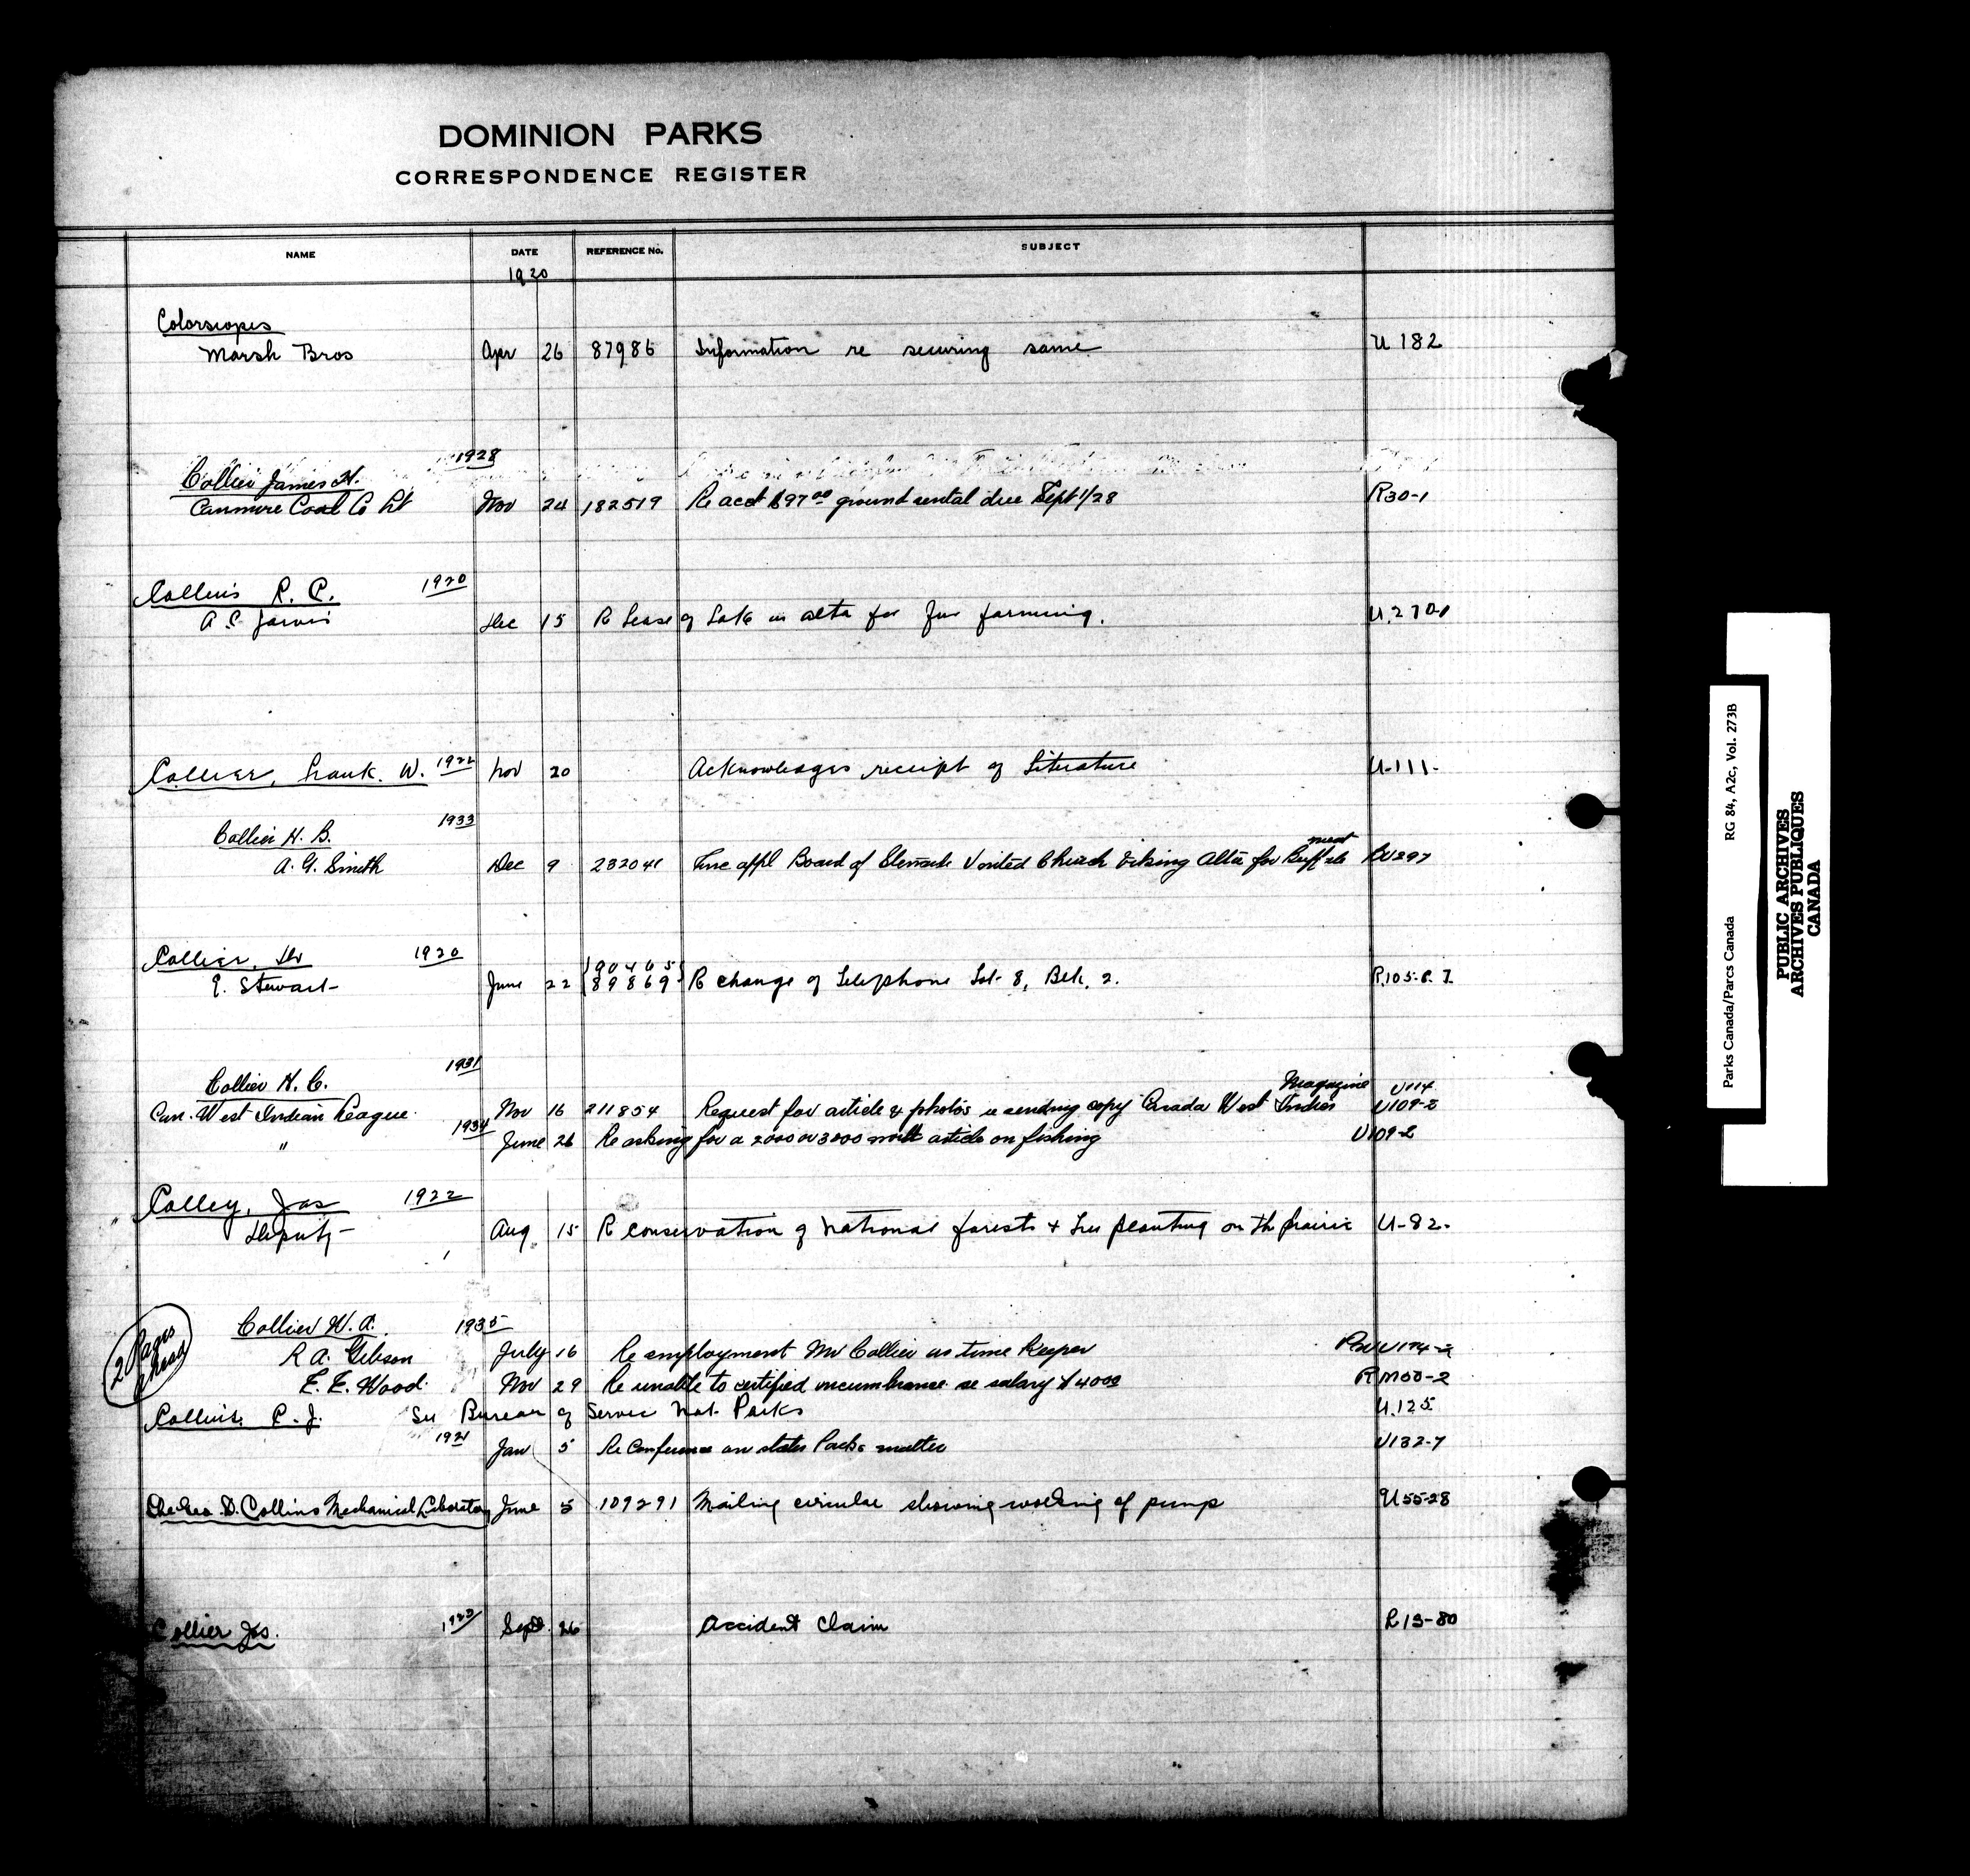 DOMINION PARKS
CORRESPONDENCE REGISTER
NAME DATE REFERENCE No. SUBJECT
1920
Colorscopes
Marsh Bros Apr 26 87986 Information re securing same U 182
Collier James H. 1928
Canmore Coal Co Lt Nov 24 182519 Re acct $97.00 ground rental due Sept 1/28 R30-1
Collins R. C. 1920
A C Jarvis Dec 15 R Lease of Lake in alta for fur farming. U.270-1
Collier, Frank. W. 1922 Nov 20 Acknowledges receipt of Literature U-111-
Collier H. B. 1933
meat
A. G. Smith Dec 9 232041 appl Board of United Church Viking Alta for Buffalo BU297
Collier, Dr 1920
90465
E. Stewart June 22 89869 R change of Telephone Lot 8, Blk. 2. R.105-
Collier H. C. 1931
Magazine U114
Can. West Indian League. Nov 16 211854 Request for article & photos re sending copy Canada West Indies U109-2
1934
" June 26 Re asking for a 2000 or 3000 article on fishing U109-2
Colley, Jas 1922
Deputy Aug 15 R conservation of National forests + tree planting on the prairie U-82-
Collier W. A. 1935
R A. Gibson July 16 Re employment Mr Collier as time Keeper U174-2
E. E. Wood. Nov 29 Re unable to certified encumbrance re salary $40.00 RM00-2
2 Pages ahead
Collins, C. J. See Bureau of Nat. Parks U.125
1921 Jan 5 Re Conference on states Parks matter U132-7
The Geo. D. Collins Mechanical Laboratory June 5 109291 Mailing circular showing working of pump U55-28
Collier Jas. 1923 Sept. 26 Accident Claim R13-80
Parks Canada/Parcs Canada RG 84, A2c, Vol. 273B
PUBLIC ARCHIVES
ARCHIVES PUBLIQUES
CANADA